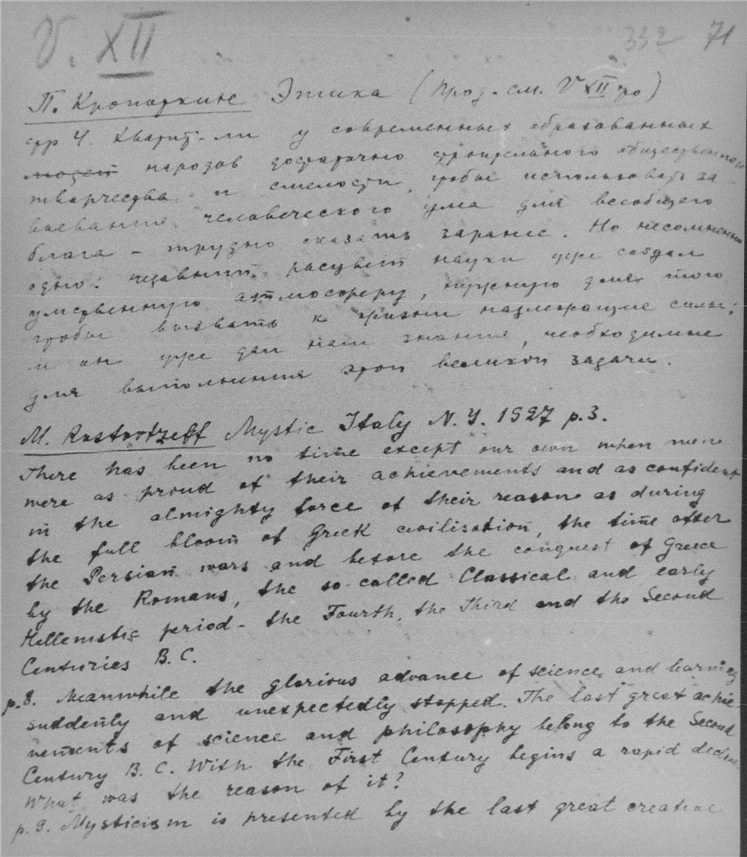 V. XII
332 71
П. Кропоткине Этика (Прод. см. V XII)
стр 4. Хватит-ли у современных образованных
народов достаточно строительного общественного
творчества и смелости, чтобы использовать за-
воевания человеческого ума для всеобщего
блага - трудно сказать заранее. Но несомненно
одно: недавний расцвет науки уже создал
умственную атмосферу, нужную для того,
чтобы вызвать к жизни надлежащие силы;
и он уже дал нам знания, необходимые
для выполнения этой великой задачи.
M. Rostovtzeff Mystic Italy N.Y. 1927 p.3.
There has been no time except our own when men
were as proud of their achievements and as confident
in the almighty force of their reason as during
the full bloom of Greek civilisation, the time after
the Persian wars and before the conquest of Greece
by the Romans, the so-called Classical and early
Hellenistic period - the Fourth, the Third and the Second
Centuries B.C.
p.8. Meanwhile the glorious advance of science and learning
suddenly and unexpectedly stopped. The last great achie-
vements of science and philosophy belong to the Second
Century B.C. With the First Century begins a rapid decline
What was the reason of it?
p.9. Mysticism is presented by the last great creative